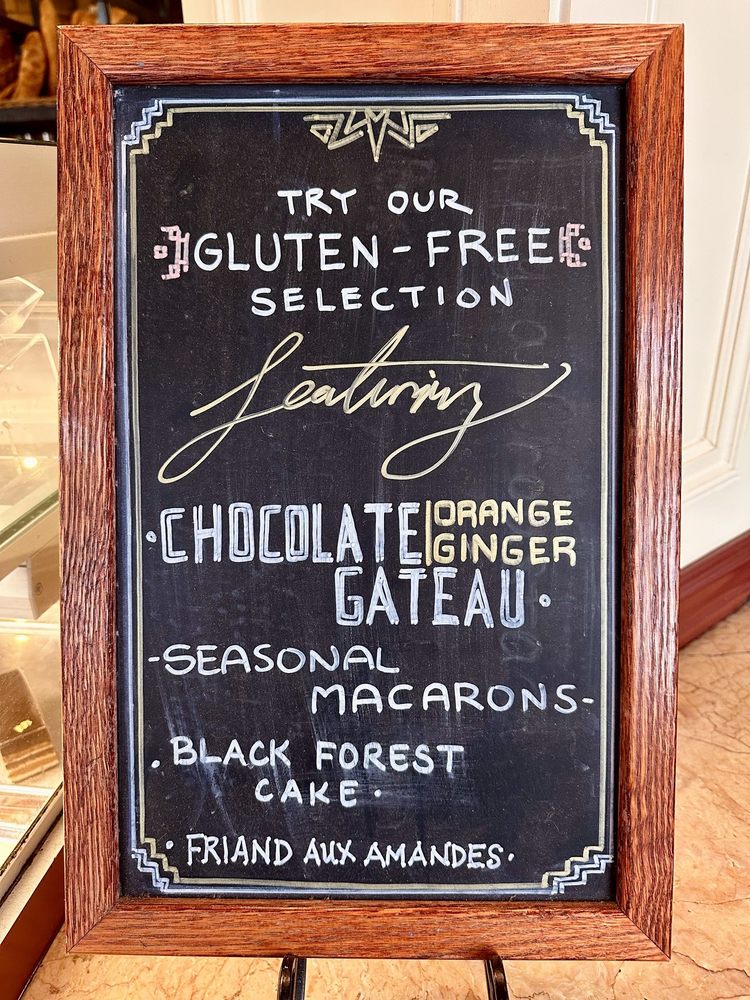 TRY OUR
GLUTEN-FREE
SELECTION
Featuring
·CHOCOLATE|ORANGE
GINGER
GATEAU·
-SEASONAL
MACARONS-
·BLACK FOREST
CAKE·
·FRIAND AUX AMANDES·